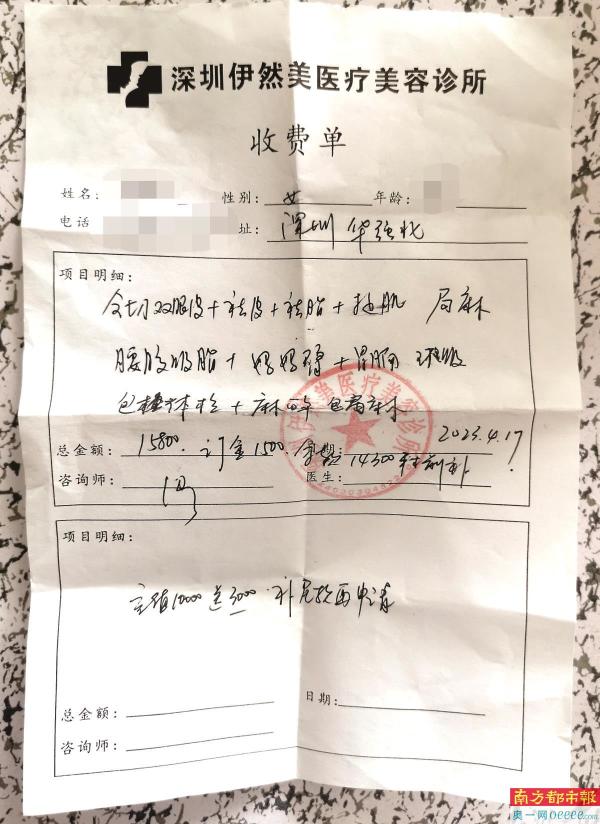 深圳伊然美医疗美容诊所
收费单
姓名: 性别: 女 年龄:
电话 址: 深圳 华强北
项目明细:
全切双眼皮+祛皮+祛脂+提肌 局麻
腰腹吸脂+妈妈臀+
包+麻 包局麻
总金额: 15800. 订金1500. 日期: 2023.4.17
余款14300 术前补
咨询师: 冯 医生:
深圳伊然美医疗美容诊所
项目明细:
充值10000送3000 补尾款再申请
总金额: 日期:
咨询师:
南方都市報
奥一网oeeee.com